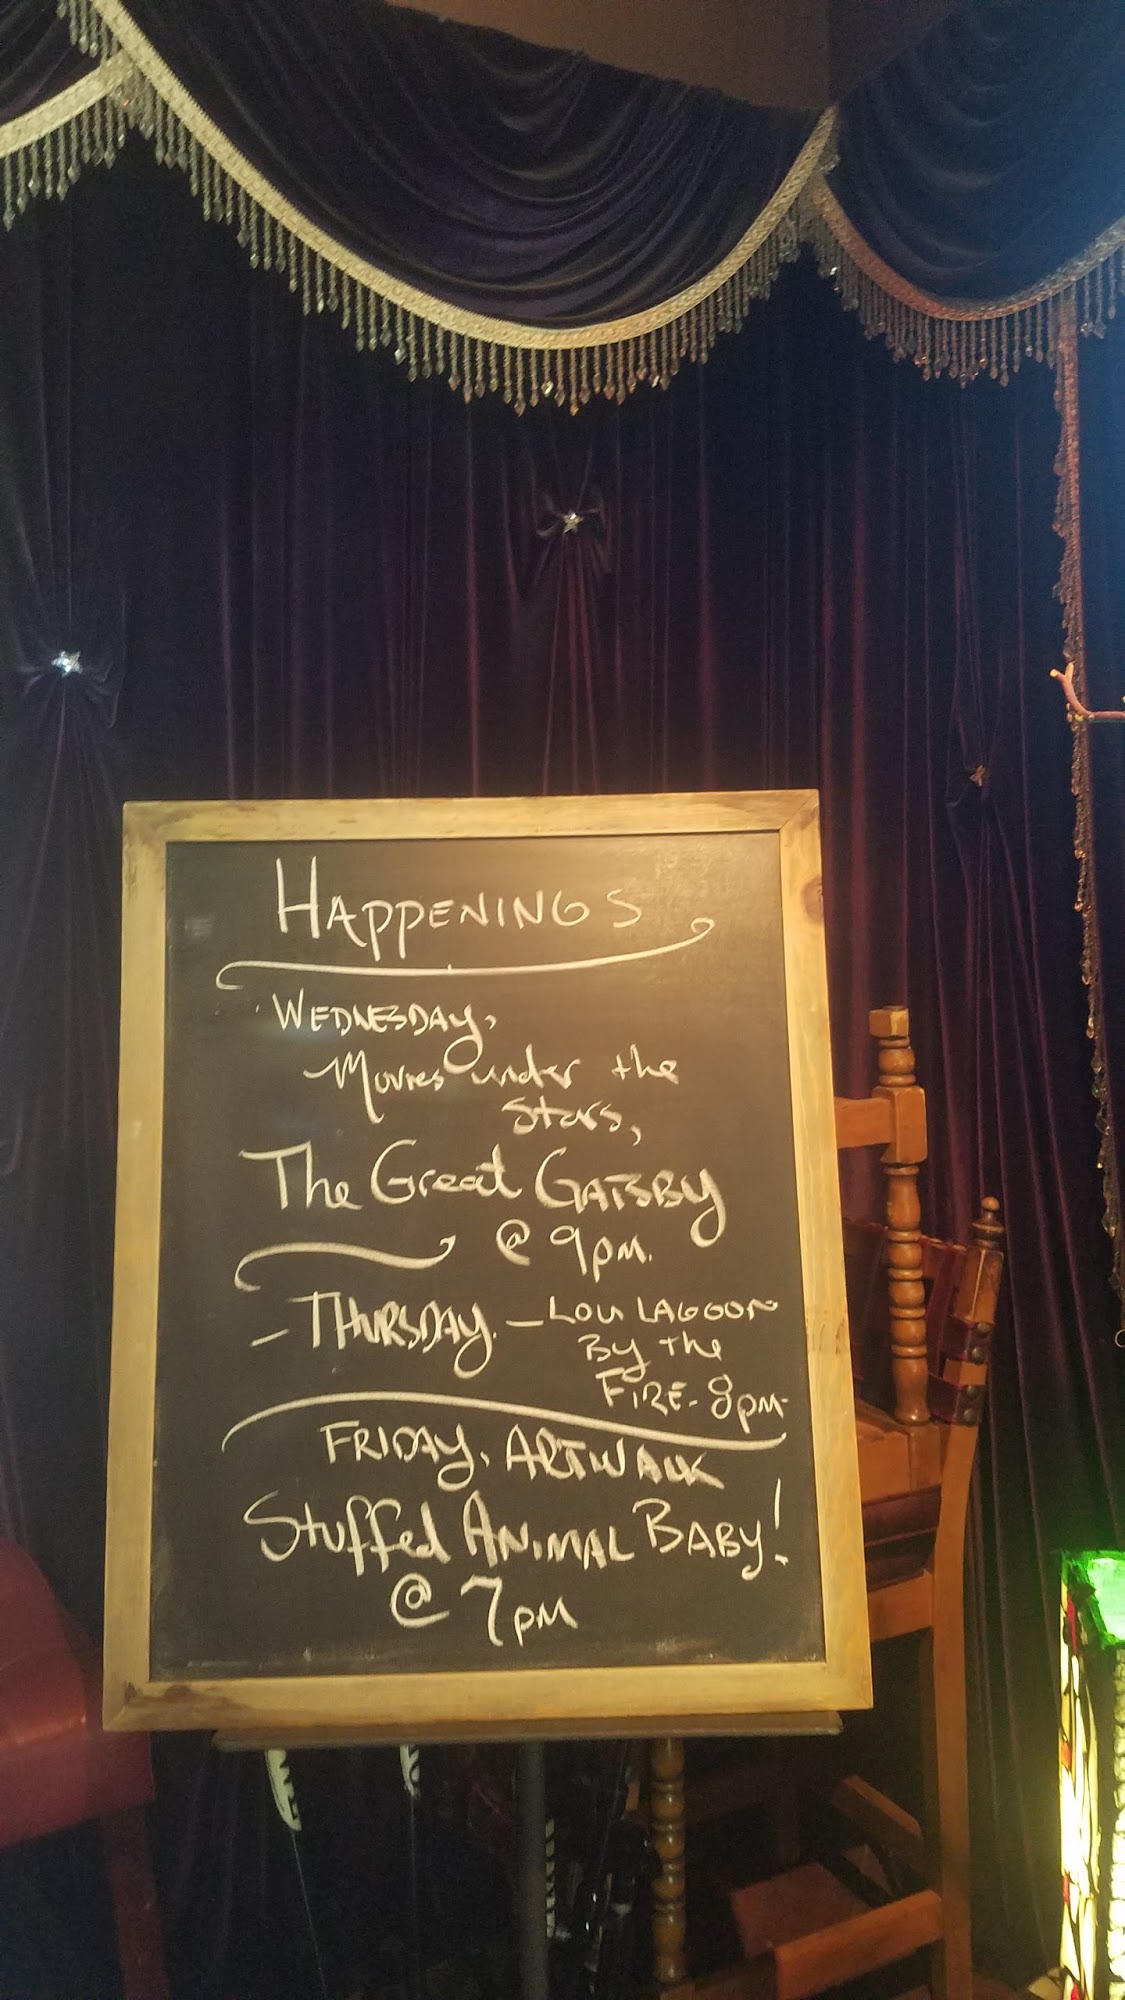 HAPPENINGS
WEDNESDAY,
Movies under the
Stars,
The Great GATSBY
@ 9pm.
- THURSDAY. - LOU LAGOON
By the
FIRE. 8pm.
FRIDAY. ARTWALK
Stuffed ANIMAL BABY!
@ 7pm